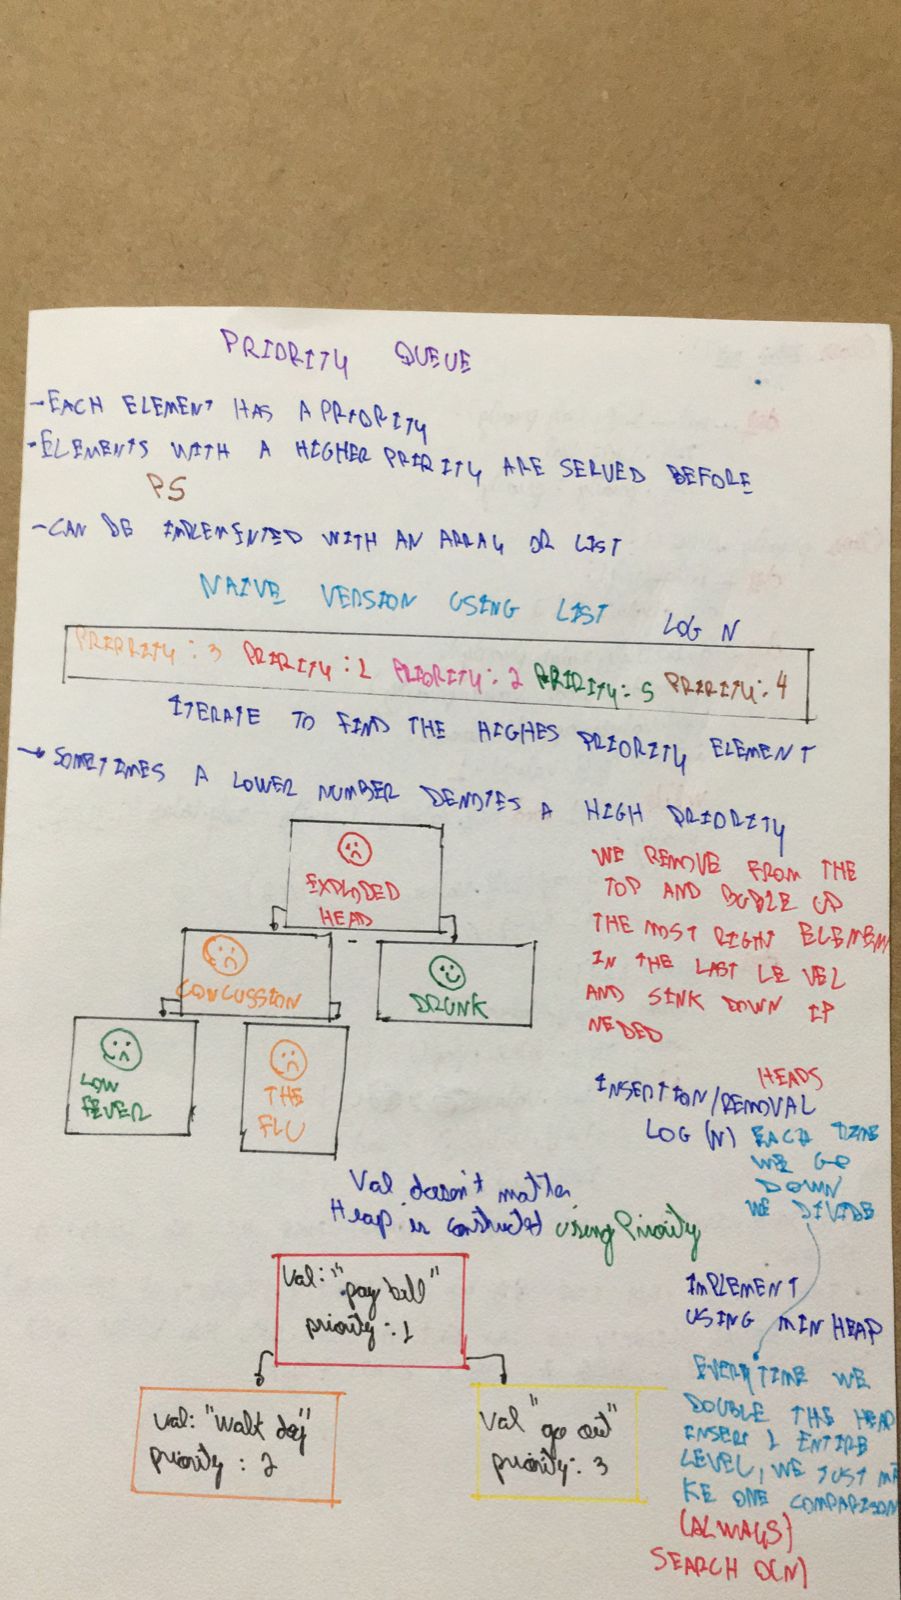 PRIORITY QUEUE
-EACH ELEMENT HAS A PRIORITY
-ELEMENTS WITH A HIGHER PRIRITY ARE SERVED BEFORE
PS
-CAN BE IMPLEMINTED WITH AN ARRAY OR LIST
NAIVE VERSION USING LIST
LOG N
PRIRRITY: 3 PRIRITY: 1 PRIORITY: 2 PRIRITY: 5 PRIRITY: 4
ITERATE TO FIND THE HIGHES PRIORITY ELEMENT
→ SOMETIMES A LOWER NUMBER DENOTES A HIGH PRIORITY
EXPLODED
HEAD
CONCUSSION
DRUNK
LOW
FEVER
THE
FLU
WE REMOVE FROM THE
TOP AND BUBLE UP
THE MOST RIGHT ELEMEN
IN THE LAST LEVEL
AND SINK DOWN IF
NEDED
HEADS
INSERTION/REMOVAL
LOG (N) EACH TIME
WE GO
DOWN
WE DIVIDE
Val doesn't matter
Heap is constructed using Priority
val: "pay bill"
priority: 1
val: "Walk dog"
priority: 2
val "go out"
priority: 3
IMPLEMENT
USING MIN HEAP
EVERYTIME WE
DOUBLE THE HEAP
INSERT 1 ENTIRE
LEVEL, WE JUST MA
KE ONE COMPARISON
(ALWAYS)
SEARCH O(N)